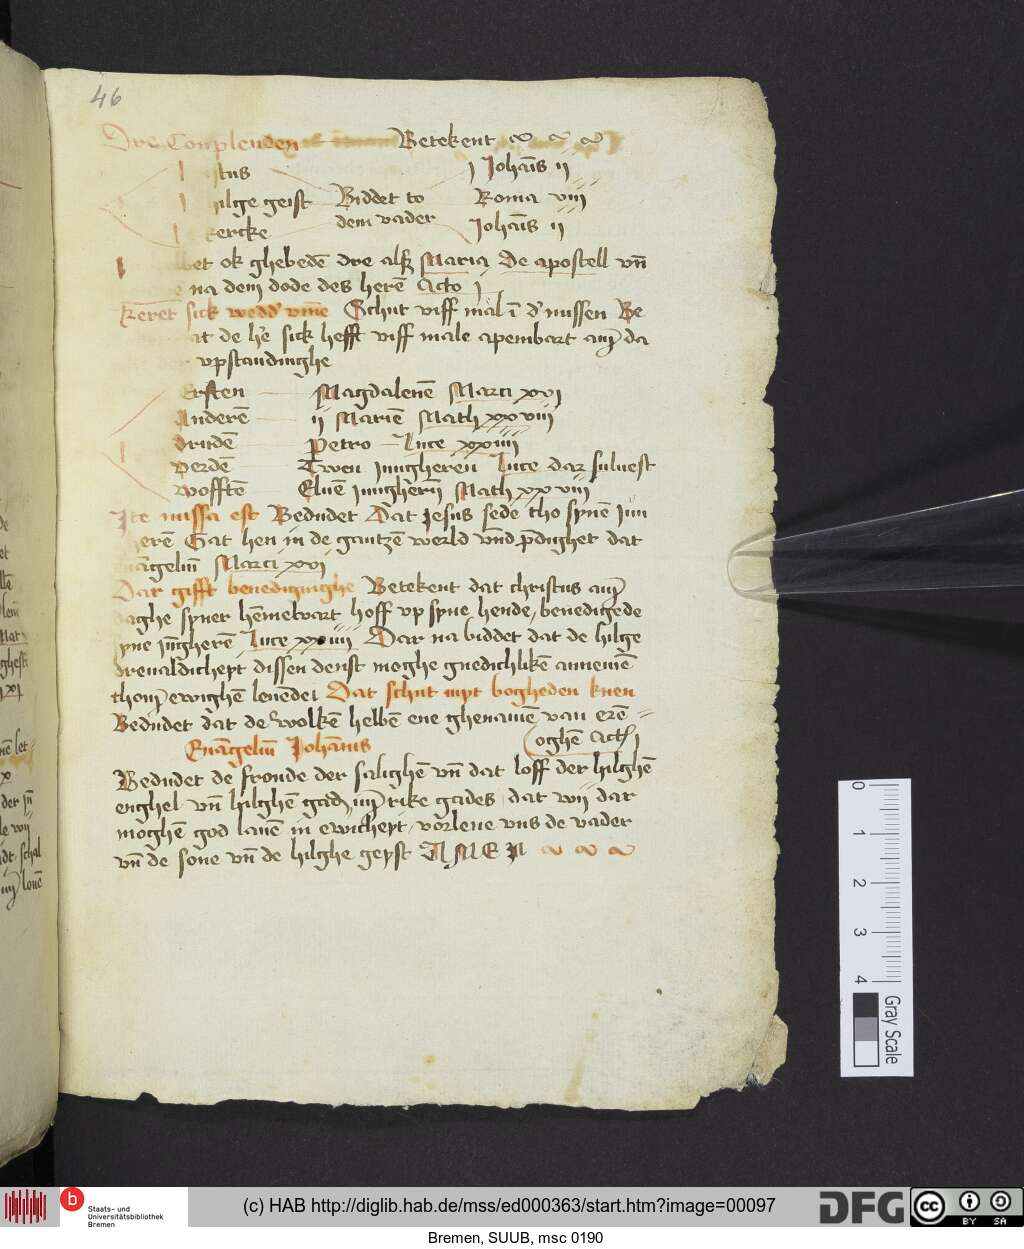 46
Dre Conplenden Betekent
stus j Johāis ij
ilge geist Biddet to Roma viij
kercke dem vader Johāis ij
bet ok ghebedē dre alß Maria De apostell vñ
na dem dode des herē Acto j
keret sick wedd' vme Schut viff mal ī d' missen Be
at de h'e sick hefft viff male apenbart an da
vpstandinghe
Ersten Magdalenē Marci xvi
Anderē ij Mariē Math xxviij
drudē Petro Luce xxiiij
verdē Twen jungheren Luce dar suluest
vofftē Eluē jungherñ Math xxviij
Ite missa est Bedudet Dat Jesus sede tho synē jun
erē Gat hen in de gantzē werld vnd p̄dighet dat
uāgeliū Marci xvi
Dar gifft benediginghe Betekent dat christus am
daghe syner hēmeluart hoff vp syne hende, benedigede
syne jūgherē Luce xxiiij Dar na biddet dat de hilge
dreualdicheyt dissen denst moghe gnedichlikē annemē
thom ewighē leuende Dat schut myt bogheden knen
Bedudet dat de wolkē helbē ene ghenamē van erē
oghē Act j
Euāgeliū Johānis
Bedudet de froude der salighē vñ dat loff der hilghē
enghel vñ hilghē gades im rike gades, dat wij dar
moghē god lauē in ewicheyt, vorlene vns de vader
vñ de sone vñ de hilghe geyst AMEN
0 1 2 3 4
Gray Scale
Staats- und
Universitätsbibliothek
Bremen
(c) HAB http://diglib.hab.de/mss/ed000363/start.htm?image=00097
DFG
cc BY SA
Bremen, SUUB, msc 0190